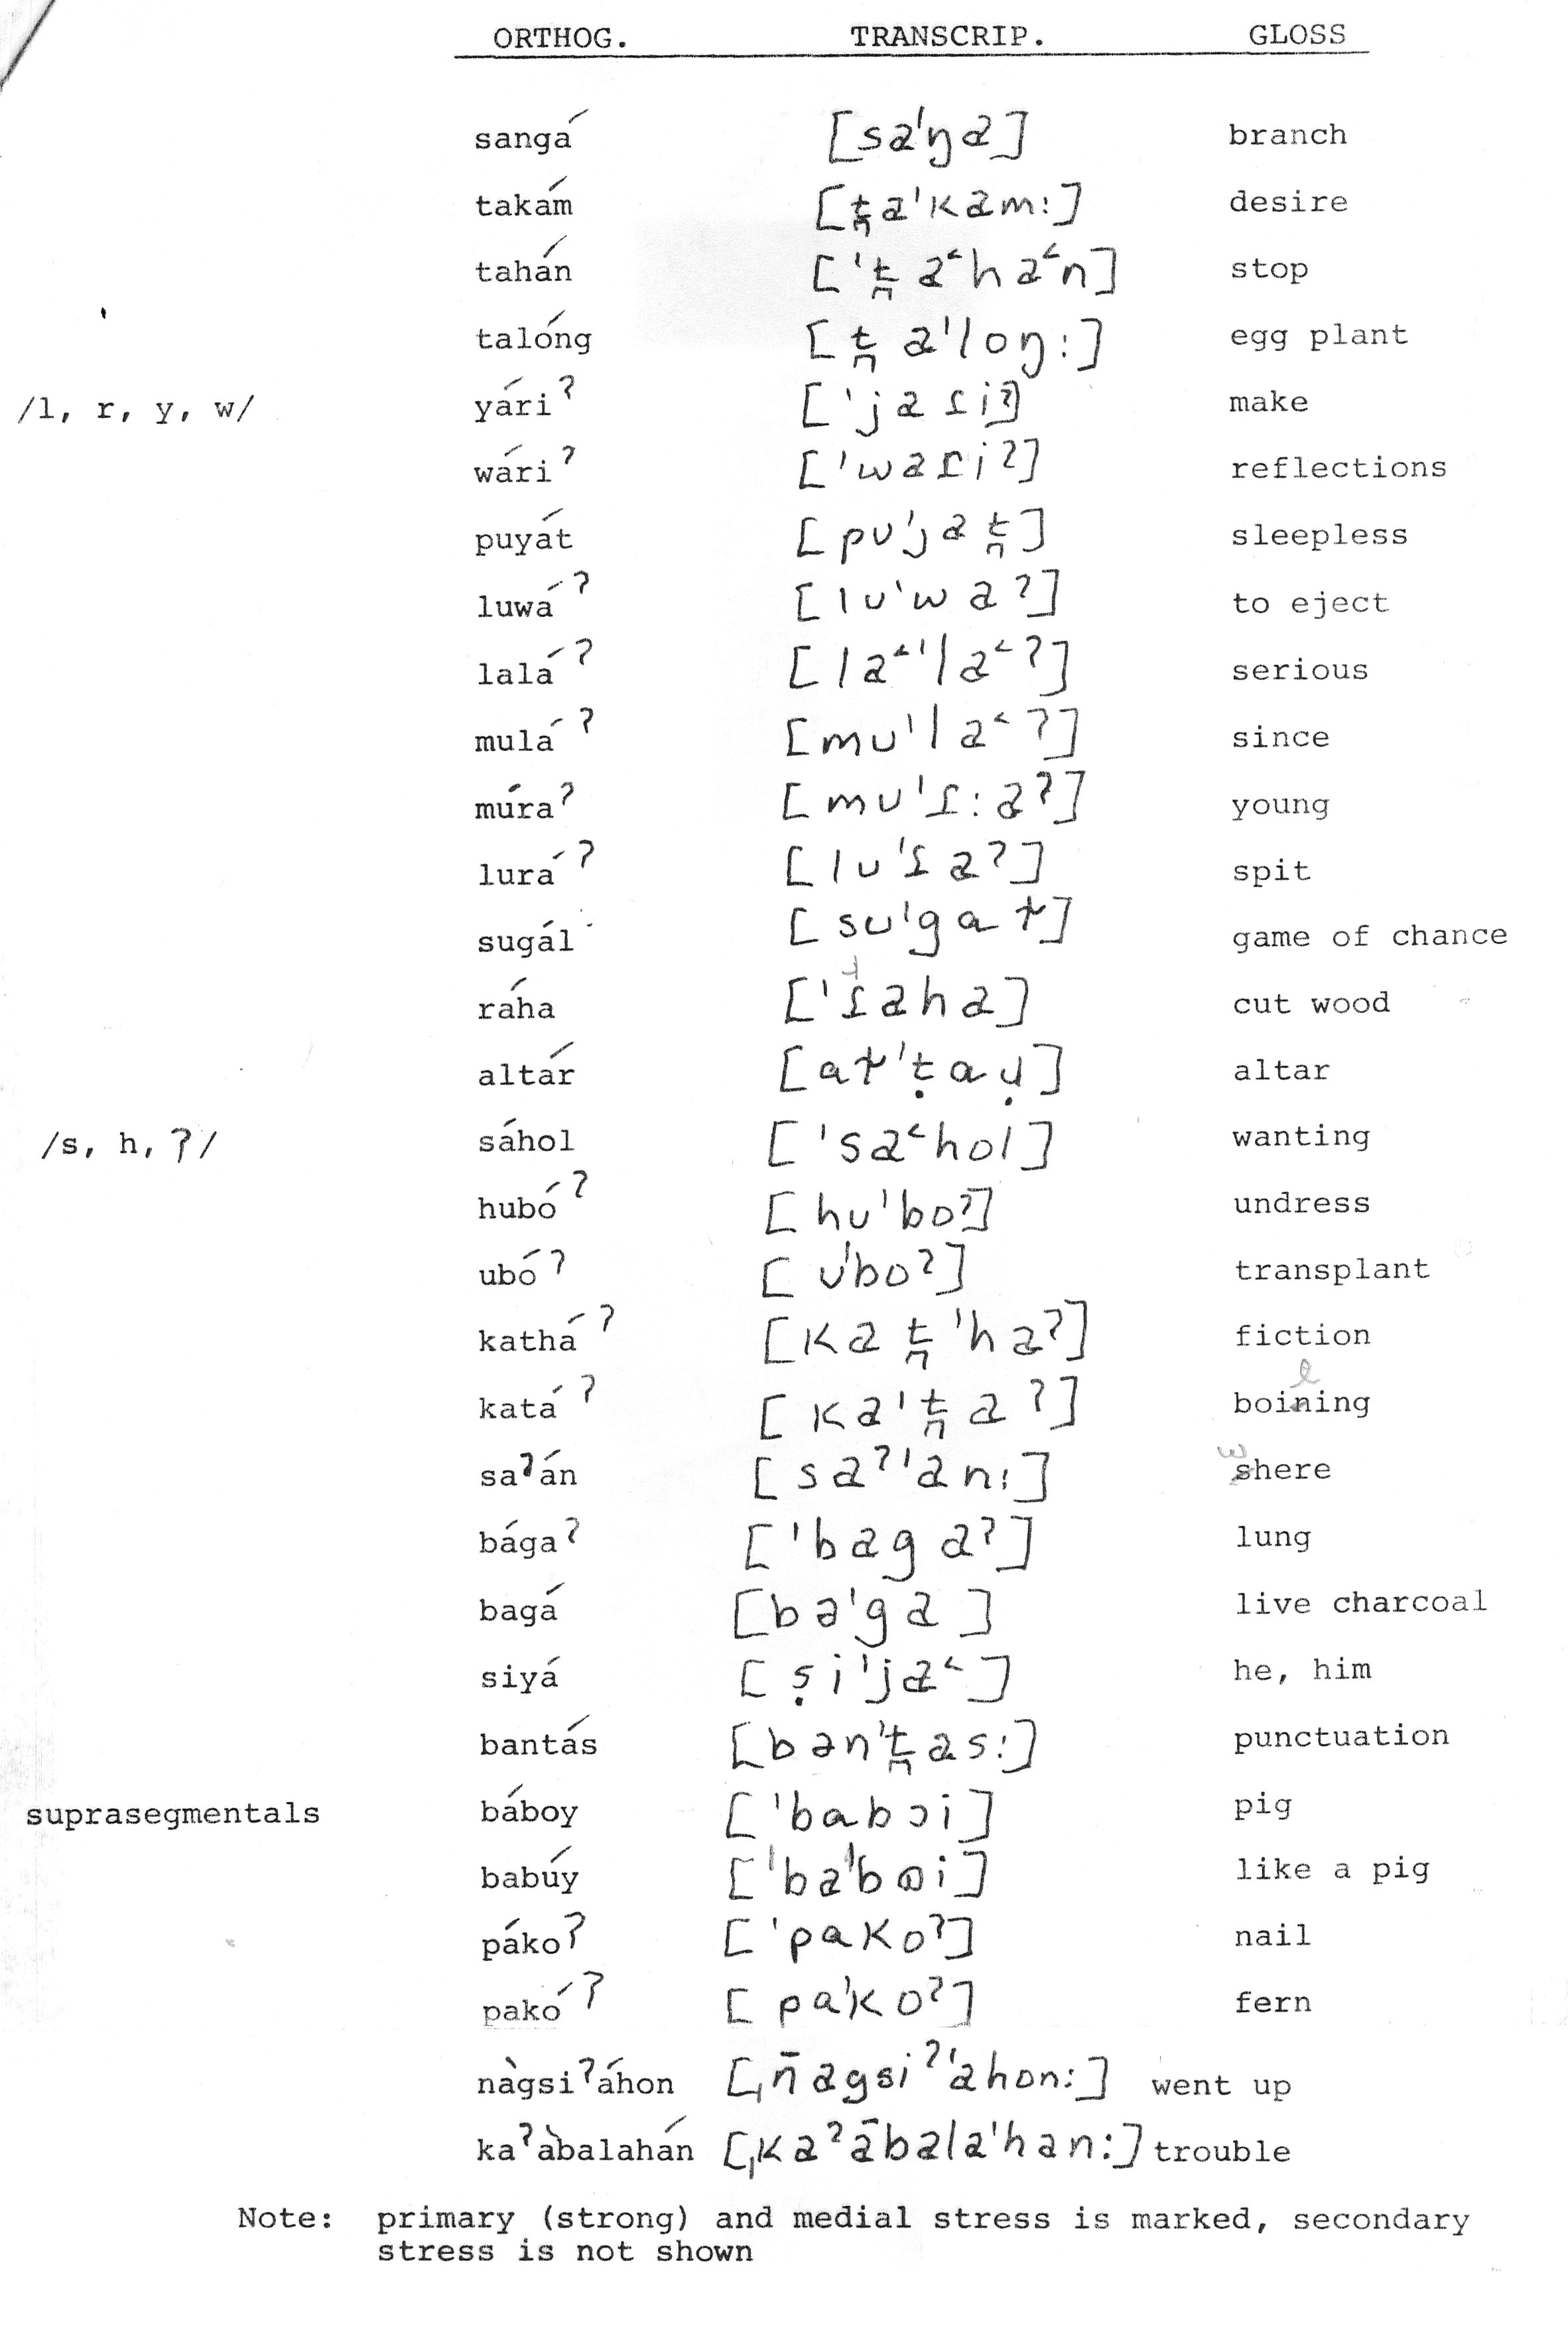 ORTHOG. TRANSCRIP. GLOSS
sangá [sa'ŋa] branch
takám [t̪a'kam:] desire
tahán ['t̪a˂ha˂n] stop
talóng [t̪a'loŋ:] egg plant
/l, r, y, w/ yáriʔ ['jaɾiʔ] make
wáriʔ ['waɾiʔ] reflections
puyát [pu'jat̪] sleepless
luwáʔ [lu'waʔ] to eject
laláʔ [la˂'la˂ʔ] serious
muláʔ [mu'la˂ʔ] since
múraʔ [mu'ɾ:aʔ] young
luráʔ [lu'ɾaʔ] spit
sugál [su'gɑɫ] game of chance
ráha ['ɾaha] cut wood
altár [ɑɫ'ṭɑɹ̣] altar
/s, h, ʔ/ sáhol ['sa˂hol] wanting
hubóʔ [hu'boʔ] undress
ubóʔ [u'boʔ] transplant
katháʔ [kat̪'haʔ] fiction
katáʔ [ka't̪aʔ] boiling
saʔán [saʔ'an:] where
bágaʔ ['bagaʔ] lung
bagá [bə'ga] live charcoal
siyá [ṣi'ja˂] he, him
bantás [bən't̪as:] punctuation
suprasegmentals báboy ['bɑbɔi] pig
babúy ['ba'bɷi] like a pig
pákoʔ ['pɑkoʔ] nail
pakóʔ [pɑ'koʔ] fern
nàgsiʔáhon [ˌn̄agsiʔ'ahon:] went up
kaʔàbalahán [ˌkaʔābala'han:] trouble
Note: primary (strong) and medial stress is marked, secondary
stress is not shown